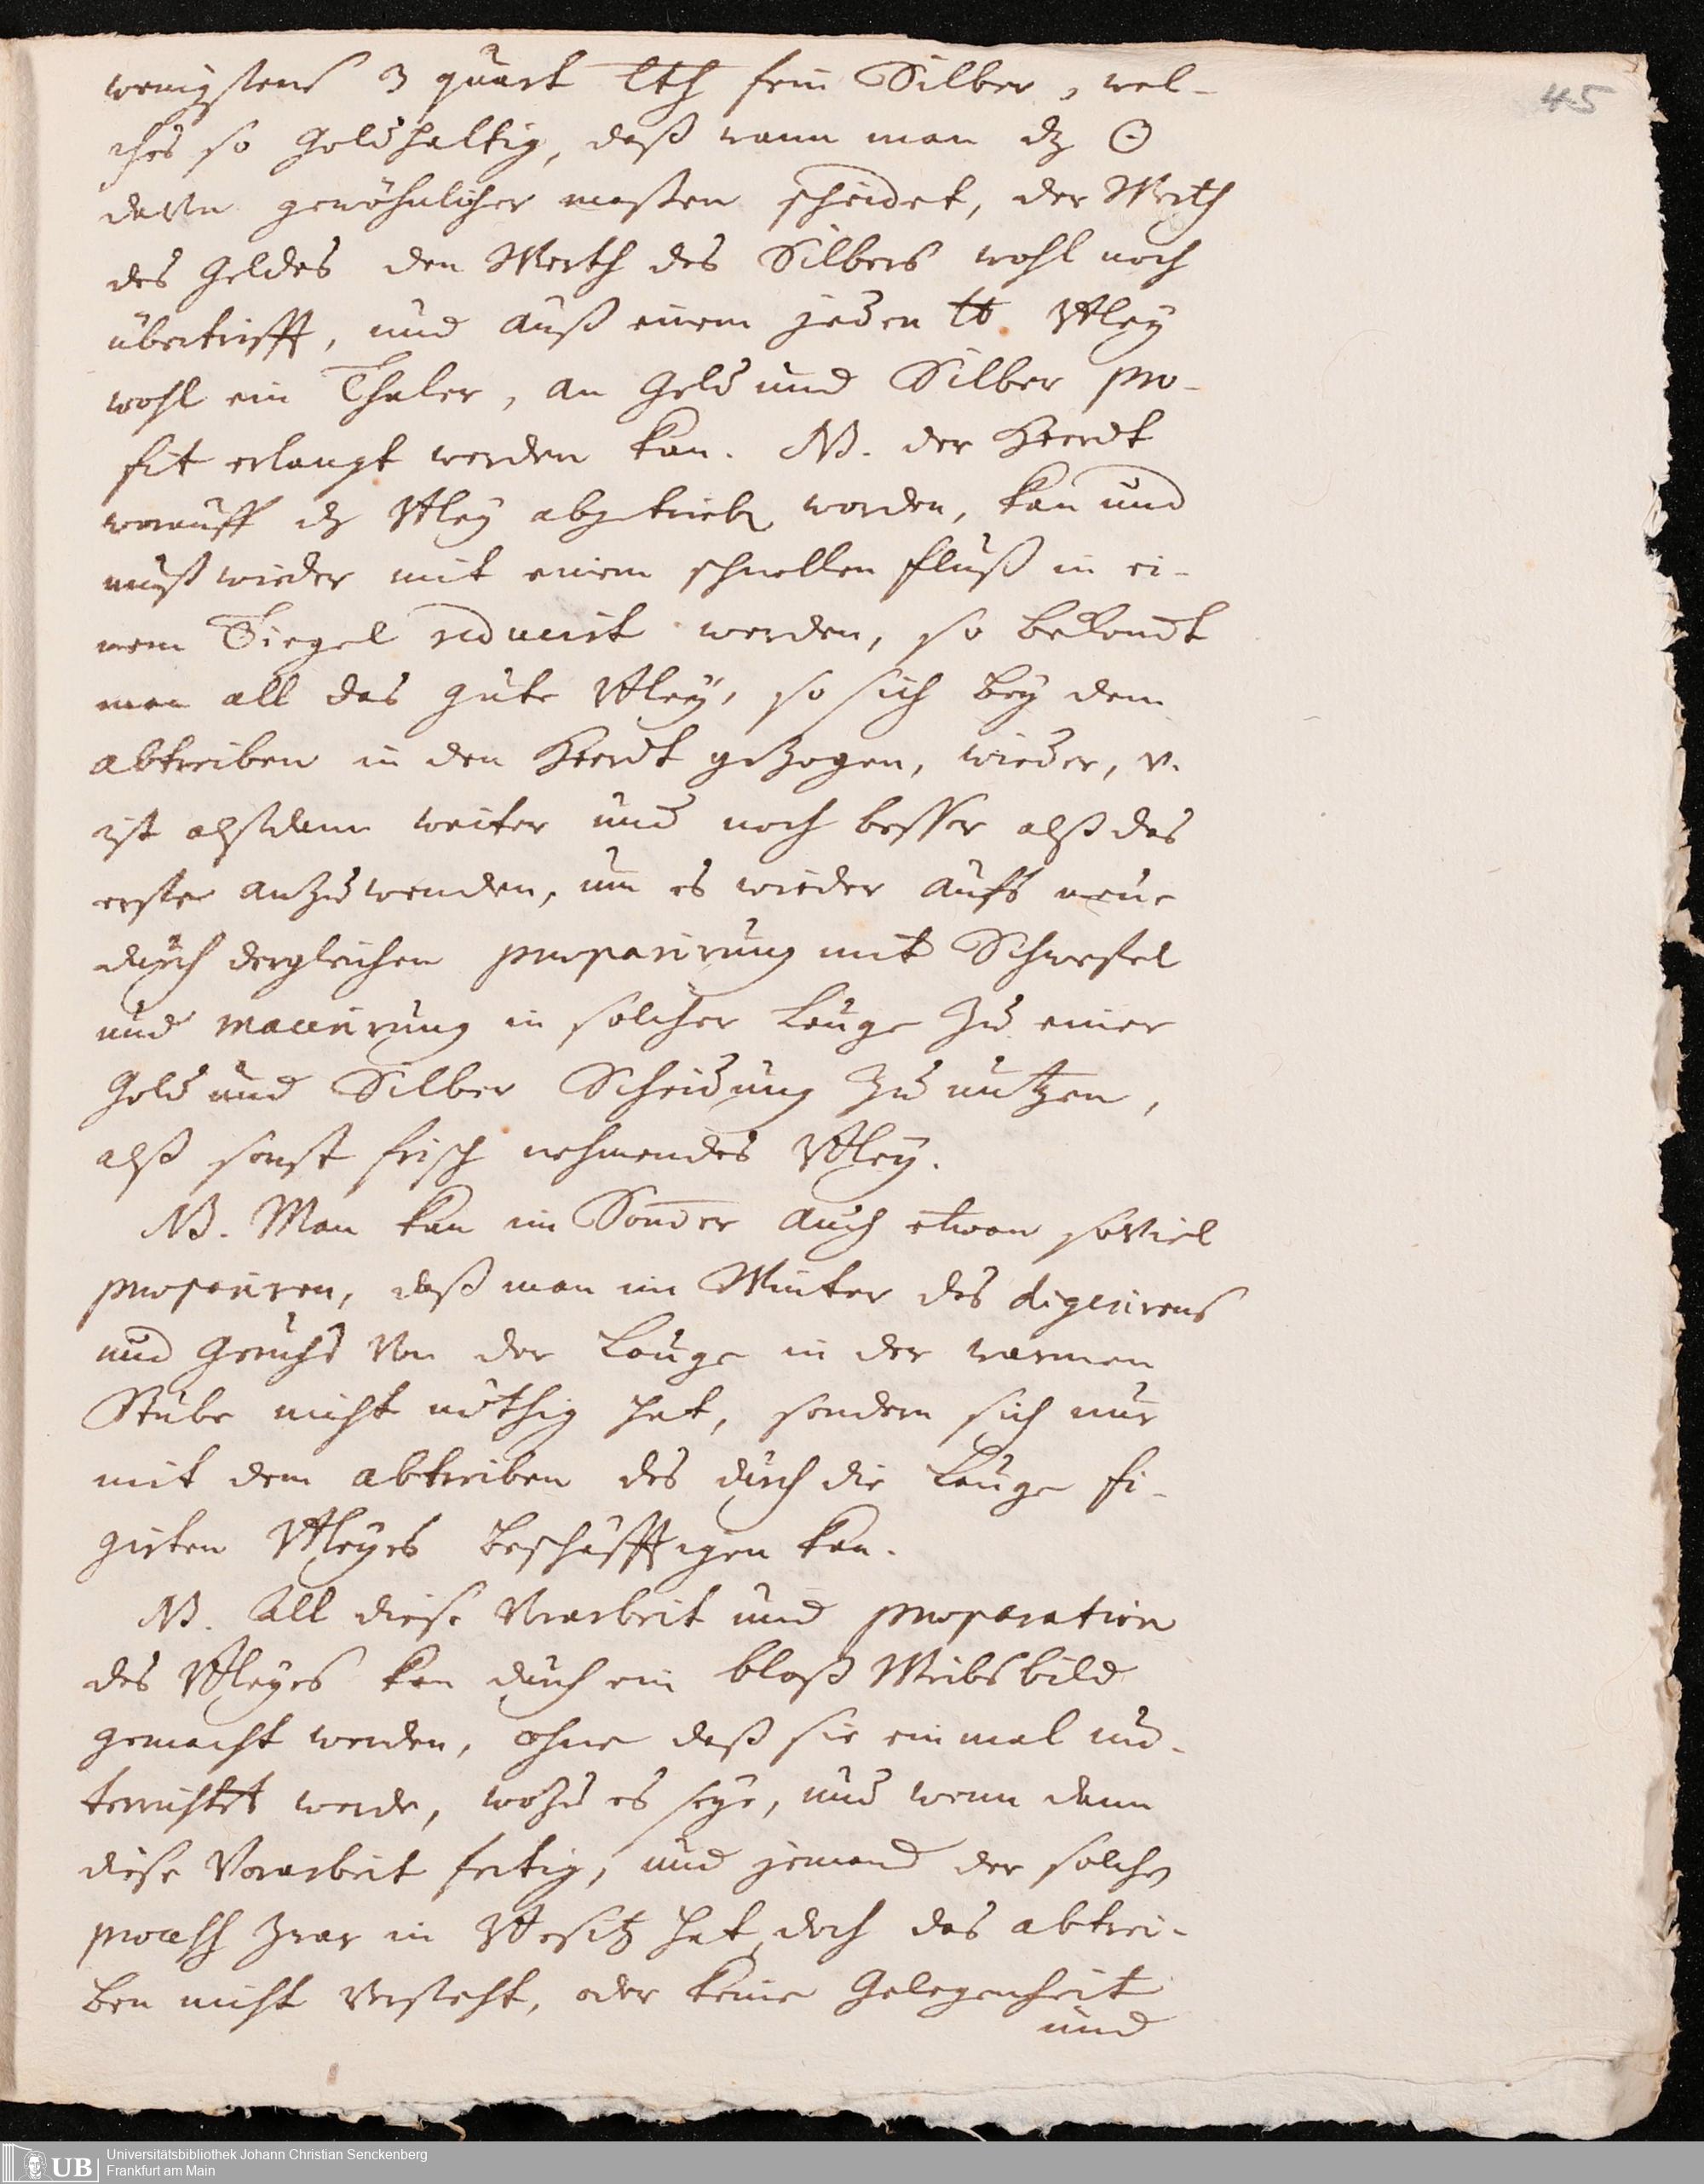 45
wenigstens 3 quart Lth fein Silber, wel-
ches so Goldhaltig, daß wann man dz ☉
davon gewöhnlicher maßen scheidet, der Werth
des Goldes den Werth des Silbers wohl noch
übertrifft, und auß einem jeden ℔. Bley
wohl ein Thaler, an Gold und Silber pro-
fit erlangt werden kan. NB. der Heerdt
worauff dz Bley abgetrieben worden, kan und
muß wieder mit einem schnellen Fluß in ei-
nem Tiegel reducirt werden, so bekomt
man all das gute Bley, so sich bey dem
abtreiben in den Heerdt gezogen, wieder, v.
ist alßdann weiter und noch besser alß das
erste anzuwenden, um es wieder aufs neue
durch dergleichen præparirung mit Schwefel
und macerirung in solcher Lauge zu einer
Gold und Silber Scheidung zu nutzen,
alß sonst frisch nehmendes Bley.
NB. Man kan im Sommer auch etwan soviel
præpariren, daß man im Winter des digerirens
und Geruchs von der Lauge in der warmen
Stube nicht nöthig hat, sondern sich nur
mit dem abtreiben des durch die Lauge fi-
girten Bleyes beschäfftigen kan.
NB. All diese Vorarbeit und præparation
des Bleyes kan durch ein bloß Weibsbild
gemacht werden, ohne daß sie einmal un-
terrichtet werde, wozu es seye, und wenn dann
diese Vorarbeit fertig, und jemand der solchen
process zwar in Besitz hat, doch das abtrei-
ben nicht versteht, oder keine Gelegenheit
und
UB Universitätsbibliothek Johann Christian Senckenberg
Frankfurt am Main